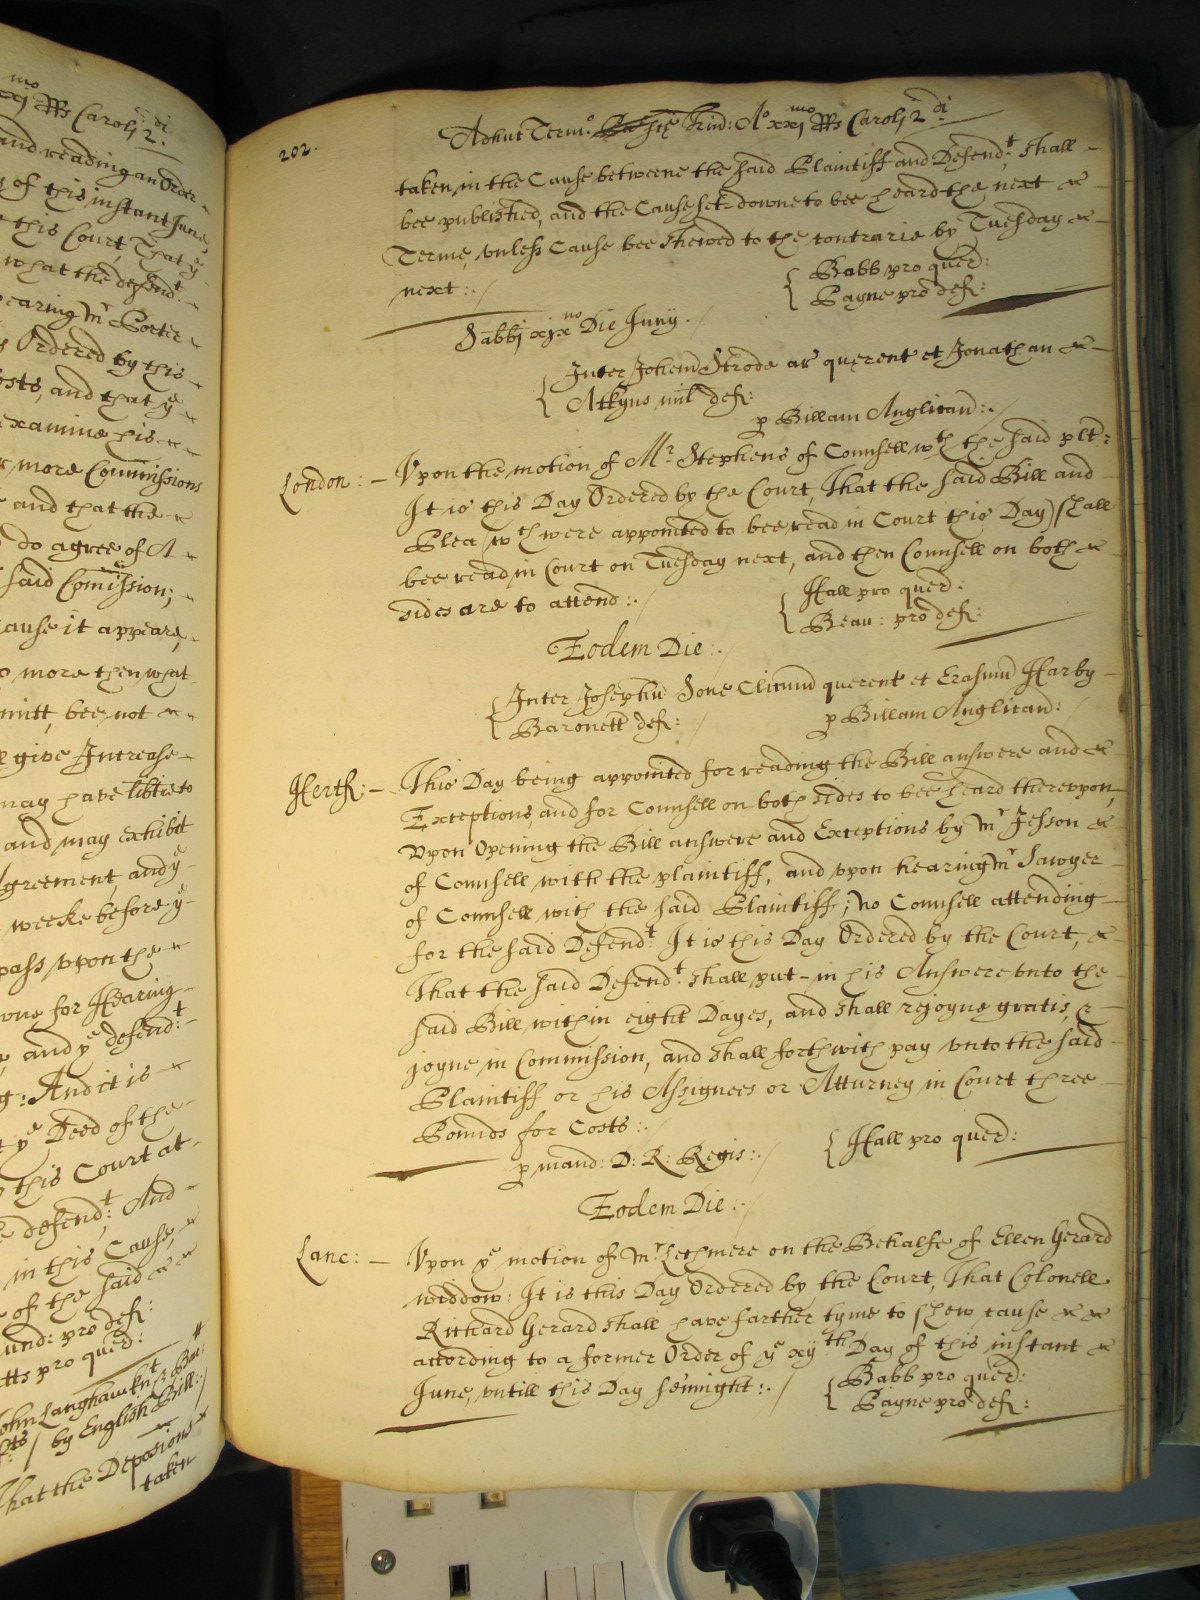 mo di
xxj RRs Caroli 2.
and reading an Order
of this instant June
this Court, That ye
what the defendt.
hearing Mr Porter
Ordered by this
Costs, and that ye
examine his
more Commissions
and that the
do agree of A
said Comission;
cause it appeare,
more then what
mitt, bee not
give Increase
may have libtie to
and may exhibit
Agreement, and ye
weeke before ye
pass vpon the
for Hearing
and ye defendt:
: And it is
ye Deed of the
this Court at
defendt: And
in this Cause,
of the said
und: pro def:
tts pro quer:
John Langhawkn
by English Bill:
That the Deposions
taken
202.
Adhuc Termo. Trin: Ao xxjmo RRs Caroli 2di
taken in the Cause betweene the said Plaintiff and Defendt. shall
bee published, and the Cause set downe to bee heard the next
Terme, vnless Cause bee shewed to the contrarie by Tuesday
next:
Babb pro quer:
Payne pro def:
Sabbi xixno Die Junij.
Inter Johem Strode ar querent et Jonathan
Atkyns mil def:
p Billam Anglican:
London: Vpon the motion of Mr. Stephens of Counsell wth the said plt:
It is this Day Ordered by the Court, That the said Bill and
Plea (wth were appointed to bee read in Court this Day) shall
bee read in Court on Tuesday next, and then Counsell on both
sides are to attend:
Hall pro quer:
Beau: pro def:
Eodem Die:
Inter Josephu Jone Clicum querent et Erasmu Harby
Baronett def:
p Billam Anglican:
Hertf: This Day being appointed for reading the Bill answere and
Exceptions, and for Counsell on both sides to bee heard therevpon,
Vpon Opening the Bill answere and Exceptions by Mr Jesson
of Counsell with the plaintiff, and vpon hearing Mr Sawyer
of Counsell with the said Plaintiff; no Counsell attending
for the said Defendt. It is this Day Ordered by the Court,
That the said Defendt. shall put in his Answere vnto the
said Bill within eight Dayes, and shall rejoyne gratis, &
joyne in Commission, and shall forthwith pay vnto the said
Plaintiff or his Assignees or Atturney in Court three
Pounds for Costs:
p mand: D: R: Regis:
Hall pro quer:
Eodem Die:
Lanc: Vpon ye motion of Mr Lechmere on the Behalfe of Ellen Gerard
widdow: It is this Day Ordered by the Court, That Colonell
Richard Gerard shall have farther tyme to shew cause
according to a former Order of ye xijth Day of this instant
June, vntill this Day sennight:
Babb pro quer:
Payne pro def: